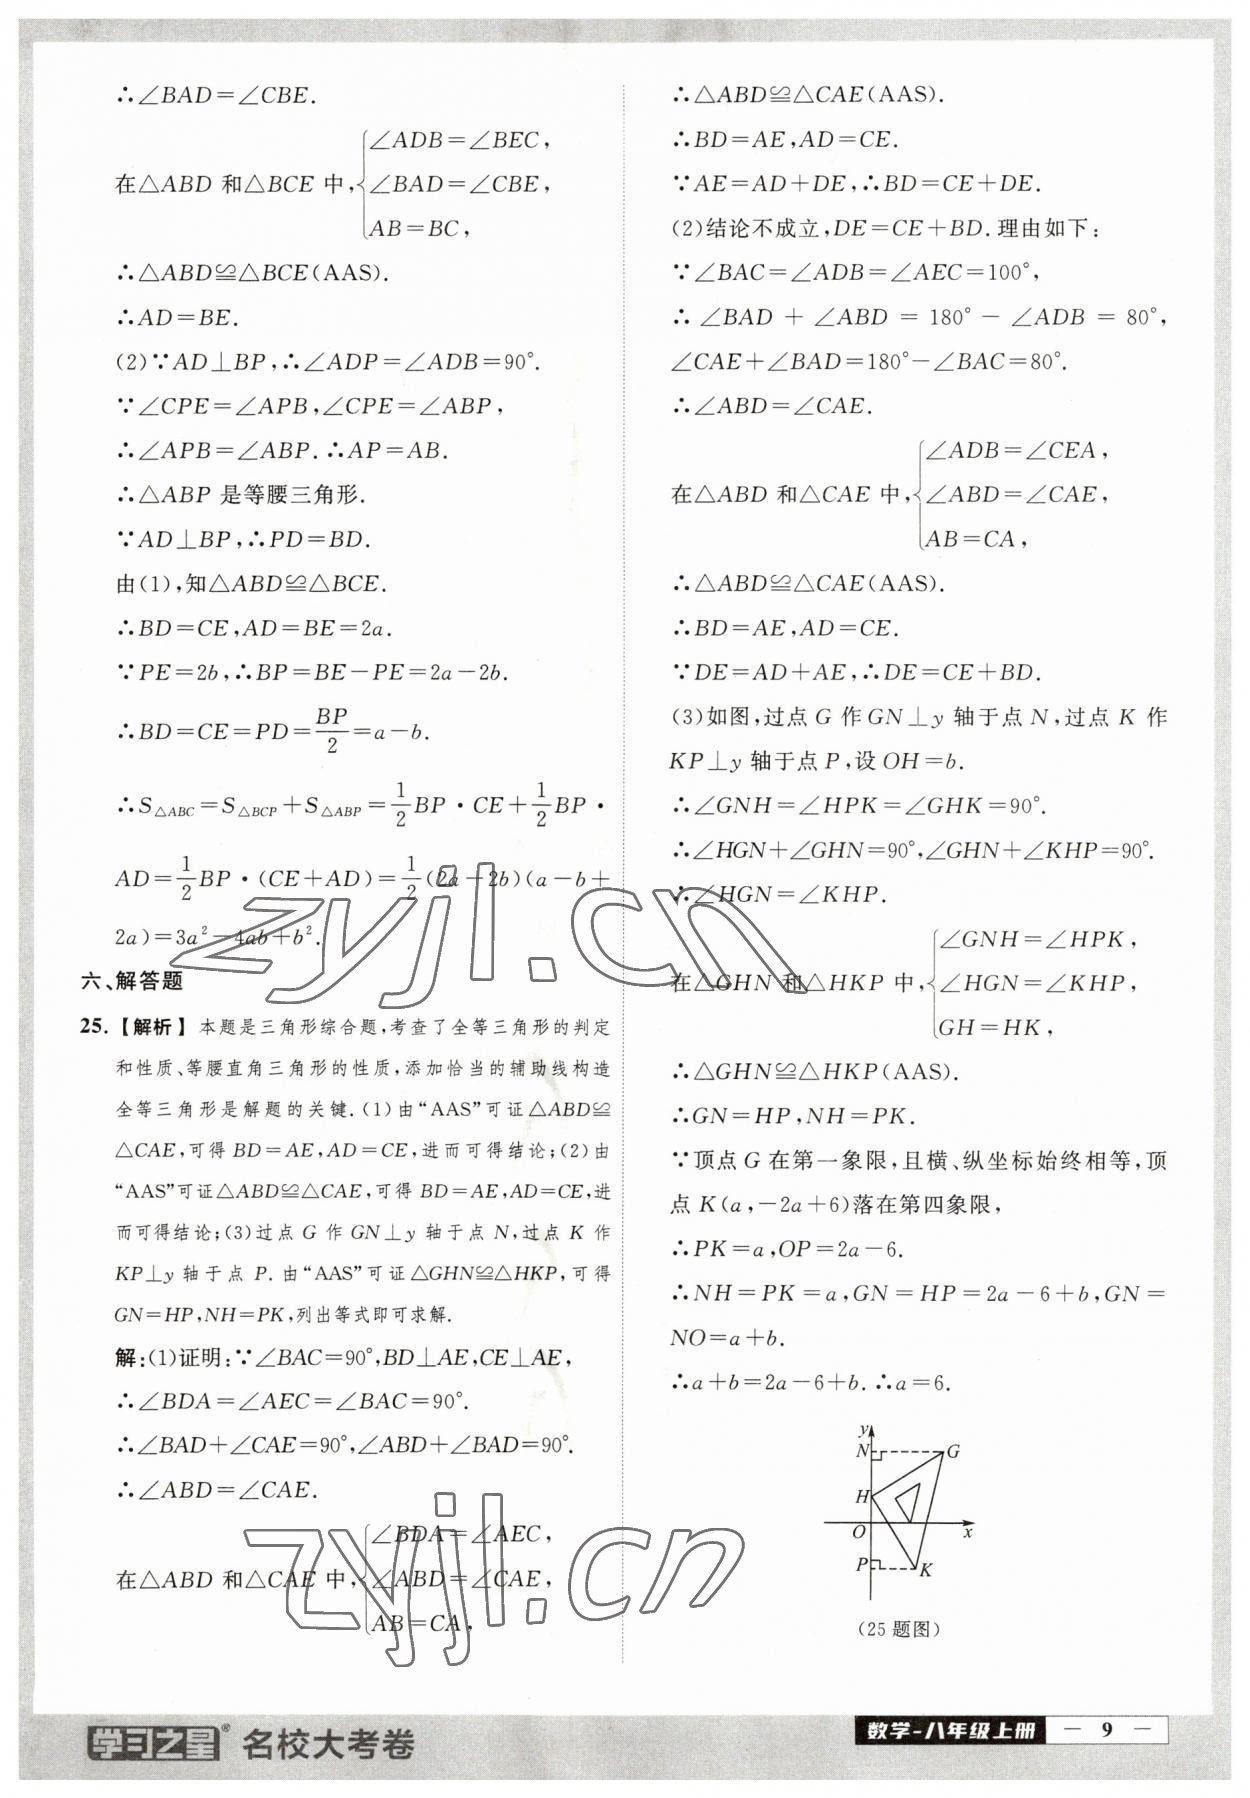 ∴∠BAD=∠CBE.
在△ABD 和△BCE 中,{∠ADB=∠BEC,
∠BAD=∠CBE,
AB=BC,
∴△ABD≌△BCE(AAS).
∴AD=BE.
(2)∵AD⊥BP,∴∠ADP=∠ADB=90°.
∵∠CPE=∠APB,∠CPE=∠ABP,
∴∠APB=∠ABP.∴AP=AB.
∴△ABP 是等腰三角形.
∵AD⊥BP,∴PD=BD.
由(1),知△ABD≌△BCE.
∴BD=CE,AD=BE=2a.
∵PE=2b,∴BP=BE-PE=2a-2b.
∴BD=CE=PD=BP/2=a-b.
∴S△ABC=S△BCP+S△ABP=1/2BP·CE+1/2BP·
AD=1/2BP·(CE+AD)=1/2(2a-2b)(a-b+
2a)=3a²-4ab+b².
六、解答题
25.【解析】本题是三角形综合题,考查了全等三角形的判定
和性质、等腰直角三角形的性质,添加恰当的辅助线构造
全等三角形是解题的关键.(1)由“AAS”可证△ABD≌
△CAE,可得 BD=AE,AD=CE,进而可得结论;(2)由
“AAS”可证△ABD≌△CAE,可得 BD=AE,AD=CE,进
而可得结论;(3)过点 G 作 GN⊥y 轴于点 N,过点 K 作
KP⊥y 轴于点 P.由“AAS”可证△GHN≌△HKP,可得
GN=HP,NH=PK,列出等式即可求解.
解:(1)证明:∵∠BAC=90°,BD⊥AE,CE⊥AE,
∴∠BDA=∠AEC=∠BAC=90°.
∴∠BAD+∠CAE=90°,∠ABD+∠BAD=90°.
∴∠ABD=∠CAE.
在△ABD 和△CAE 中,{∠BDA=∠AEC,
∠ABD=∠CAE,
AB=CA,
∴△ABD≌△CAE(AAS).
∴BD=AE,AD=CE.
∵AE=AD+DE,∴BD=CE+DE.
(2)结论不成立,DE=CE+BD.理由如下:
∵∠BAC=∠ADB=∠AEC=100°,
∴∠BAD+∠ABD=180°-∠ADB=80°,
∠CAE+∠BAD=180°-∠BAC=80°.
∴∠ABD=∠CAE.
在△ABD 和△CAE 中,{∠ADB=∠CEA,
∠ABD=∠CAE,
AB=CA,
∴△ABD≌△CAE(AAS).
∴BD=AE,AD=CE.
∵DE=AD+AE,∴DE=CE+BD.
(3)如图,过点 G 作 GN⊥y 轴于点 N,过点 K 作
KP⊥y 轴于点 P,设 OH=b.
∴∠GNH=∠HPK=∠GHK=90°.
∴∠HGN+∠GHN=90°,∠GHN+∠KHP=90°.
∴∠HGN=∠KHP.
在△GHN 和△HKP 中,{∠GNH=∠HPK,
∠HGN=∠KHP,
GH=HK,
∴△GHN≌△HKP(AAS).
∴GN=HP,NH=PK.
∵顶点 G 在第一象限,且横、纵坐标始终相等,顶
点 K(a,-2a+6)落在第四象限,
∴PK=a,OP=2a-6.
∴NH=PK=a,GN=HP=2a-6+b,GN=
NO=a+b.
∴a+b=2a-6+b.∴a=6.
y
N G
H
O x
P K
(25 题图)
zyjl.cn
zyjl.cn
学习之星® 名校大考卷
数学-八年级上册 — 9 —